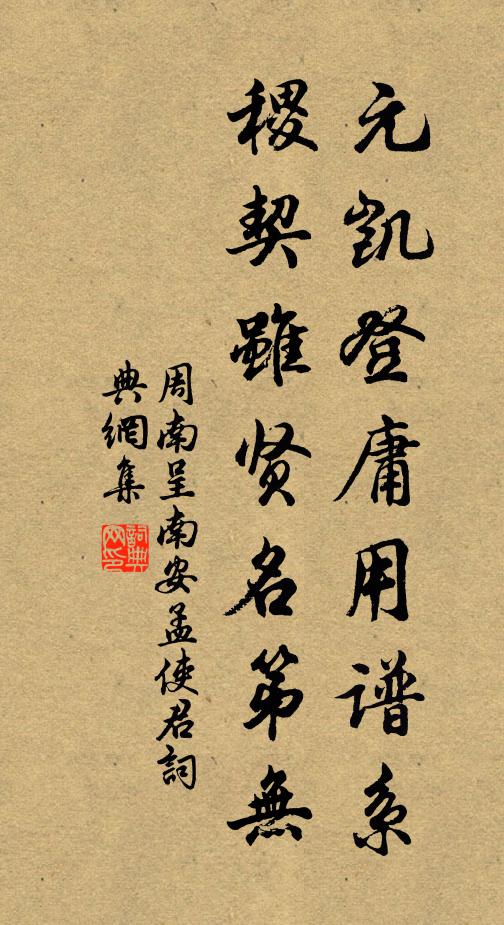 元凯登庸用谱系
稷契雖贤名第無
周南呈南安孟使君詞
典網集
詞典网印